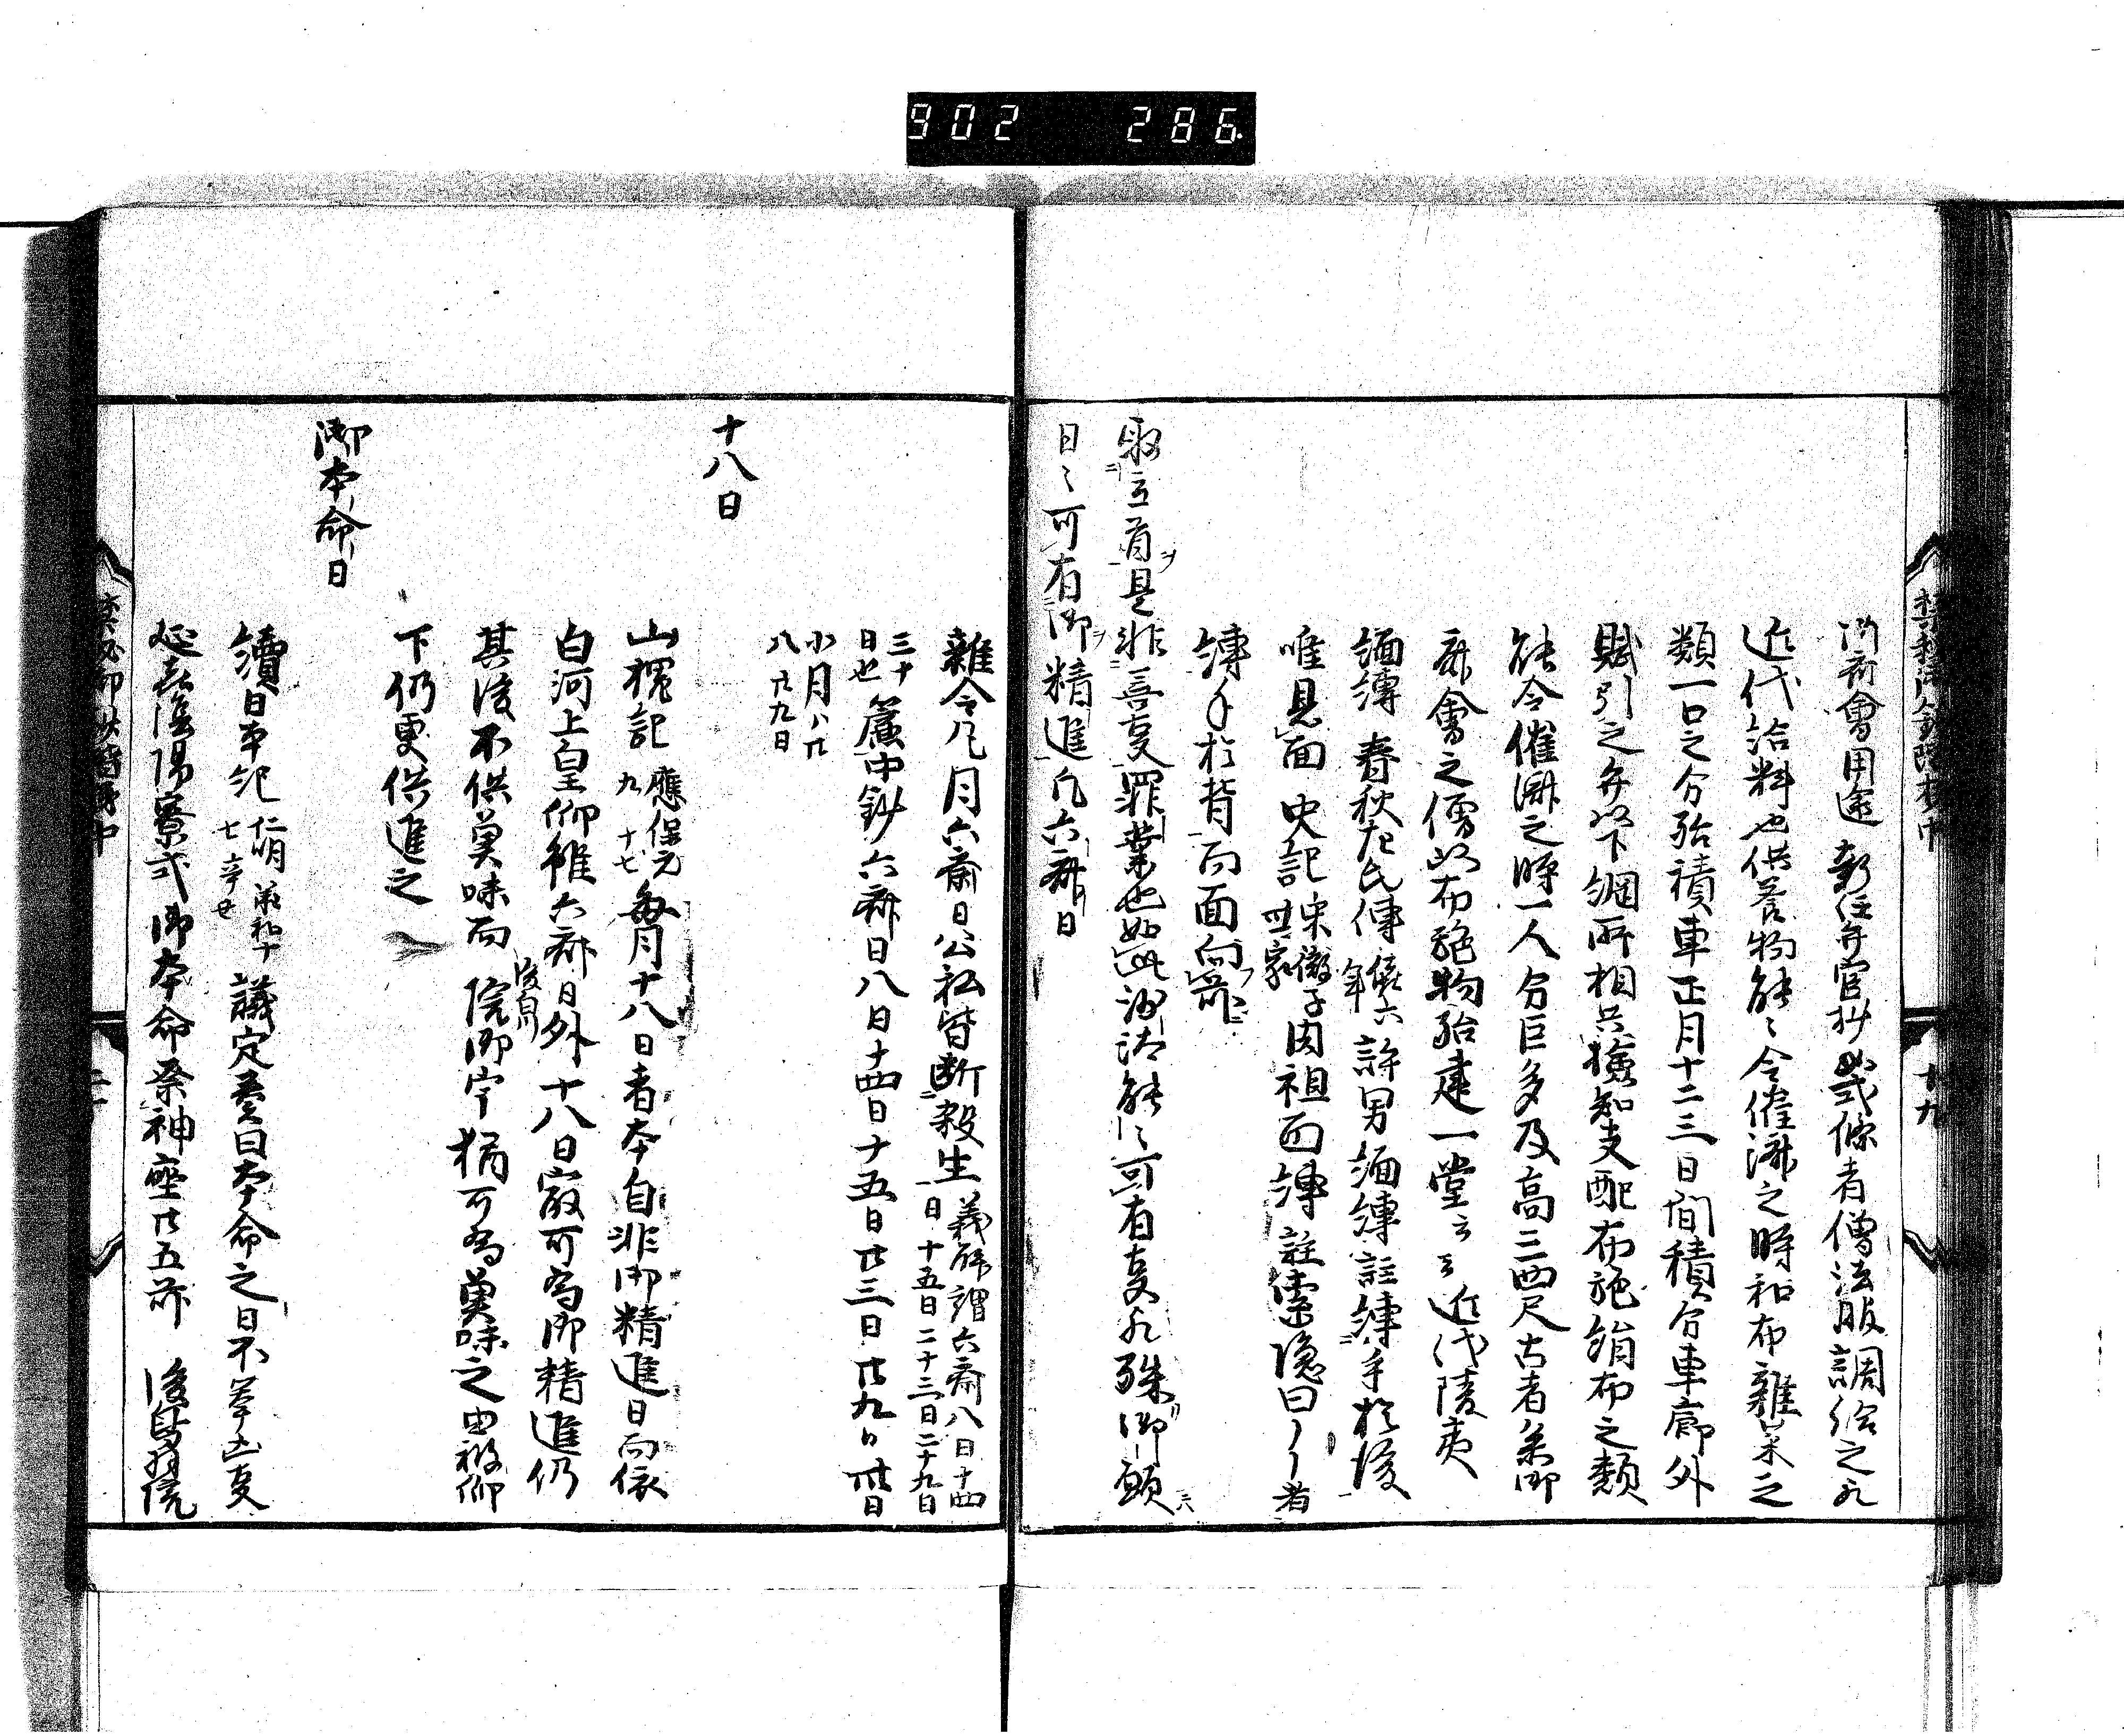 902 286
御斎會用途 新任弁官抄 式條者僧法服調給之
近代給料也供養物能〻令催済之時和布雜菓之
類一口之分殆積車正月十二三日間積分車廊外
賦引之弁以下綱所相共檢知支配布施絹布之類
能令催済之時一人分巨多及高三四尺古者參御
斎會之僧以布施物殆建一堂云云近代陵夷
面縛 春秋左氏傳 僖六年 許男面縛註縛手於後
唯見面 史記 宋微子世家 肉袒面縛註索隱曰〻〻者
縛手於背而面向前
聚立首是非喜事罪業也如此沙汰能〻可有事凡殊御願
日〻可有御精進凡六斎日
十九
雜令凡月六齋日公私皆断殺生 義解謂六齋八日十四
日十五日二十三日二十九日
三十日也 簾中鈔六斎日八日十四日十五日廿三日廿九日晦日
小月八廿八廿九日
十八日
山槐記 應保元九十七 每月十八日者本自非御精進日而依
白河上皇仰雖六斎日外十八日殿可為御精進仍
其後不供葷味而 後白川 院御宇猶可為葷味之由被仰
下仍更供進之
御本命日
續日本紀 仁明 承和十七辛丑 議定奏曰本命之日不挙凶事
延喜陰陽寮式御本命祭神座廿五前 後鳥羽院